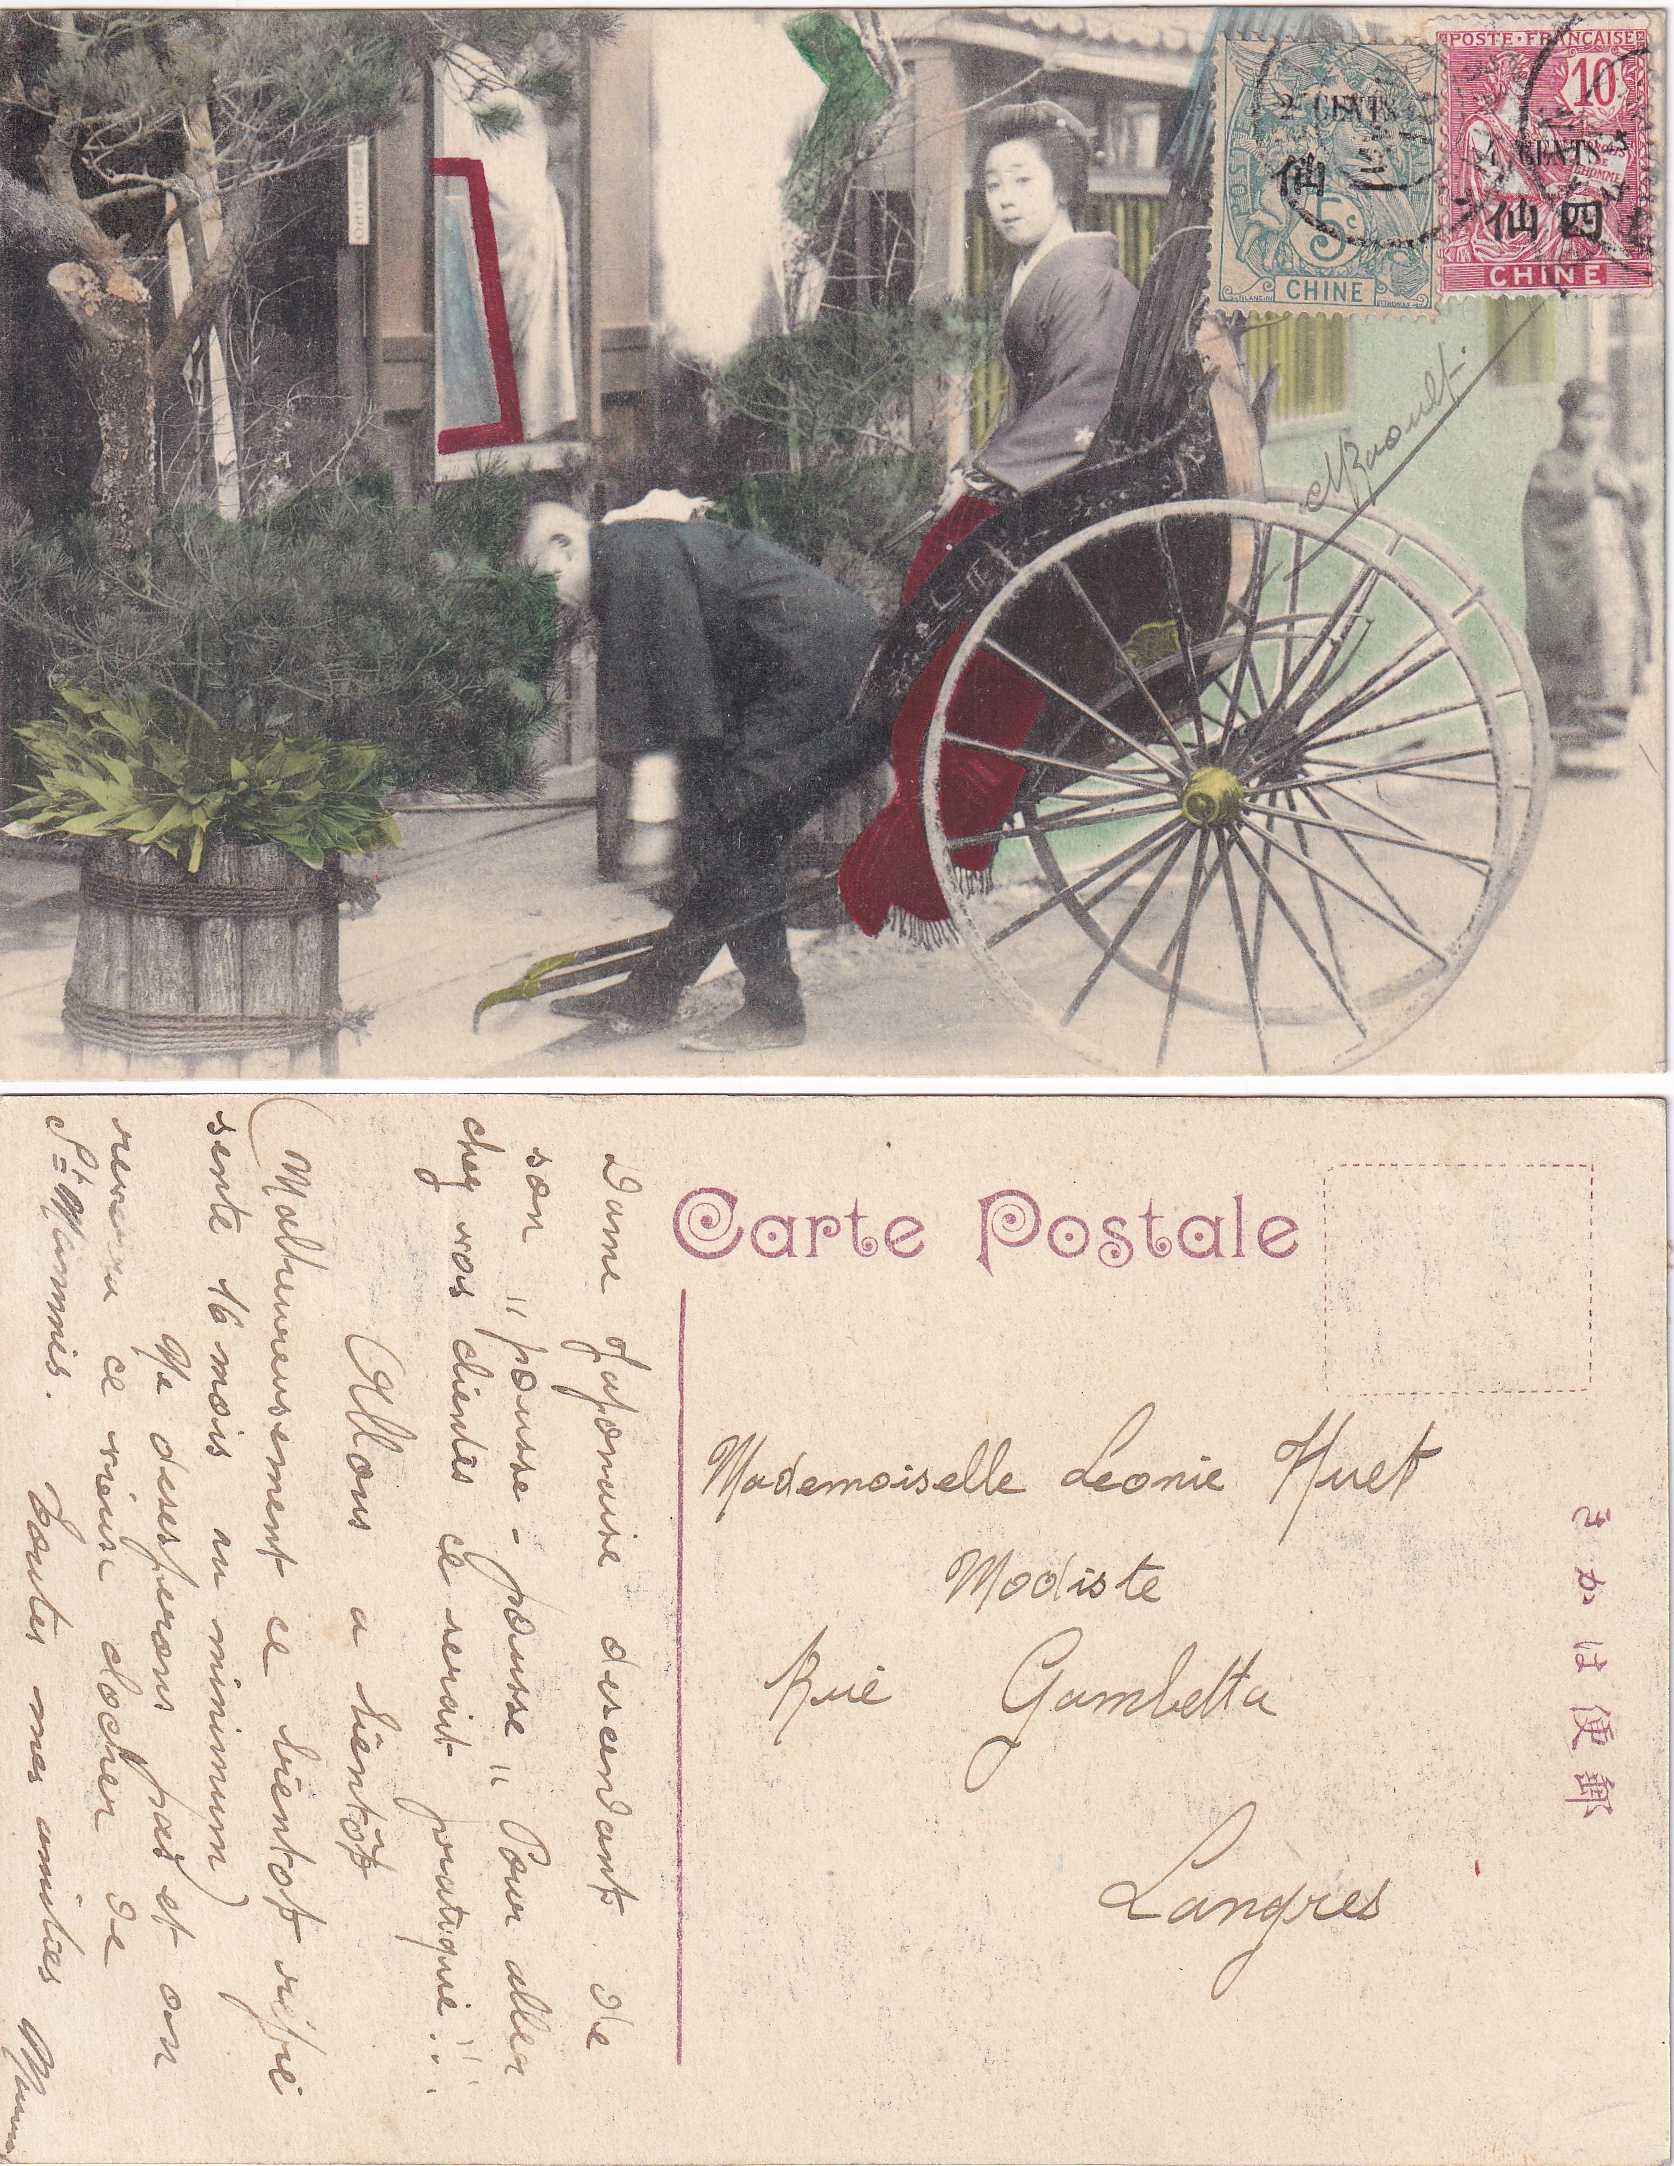 POSTE FRANÇAISE
10
2 CENTS
仙
5c
CHINE
4 CENTS
仙四
CHINE
MRaoult
Carte Postale
Mademoiselle Leonie Huet
Modiste
Rue Gambetta
Langres
きかは便郵
Dame Japonaise descendant de
son "pousse-pousse" Pour aller
chez vos clientes ce serait pratique!!
Allons a bientôt
(Malheureusement ce bientot repré
sente 16 mois au minimum)
Ne desesperons pas et on
ce vieux clocher de
St Mammès. Toutes mes amitiés